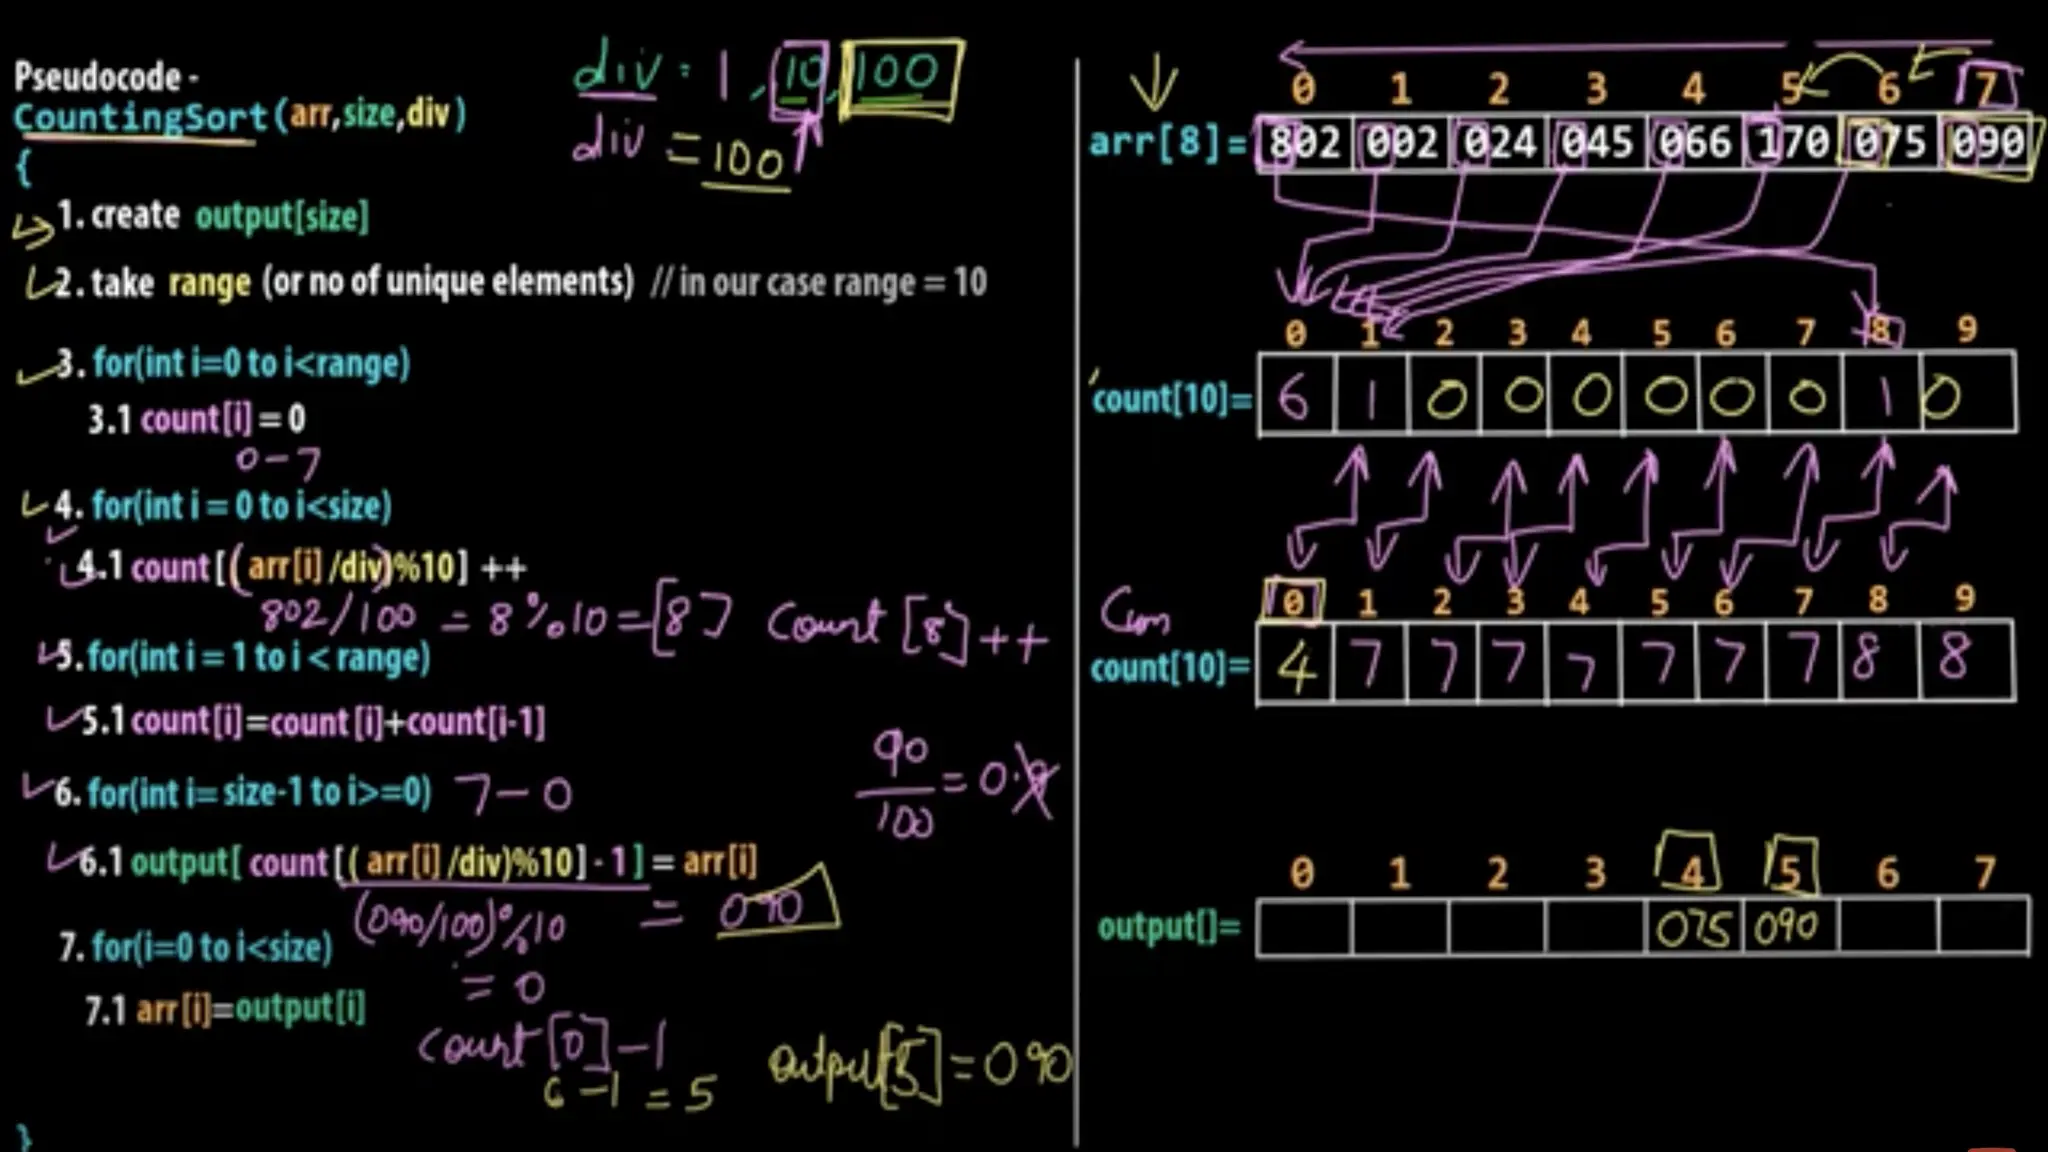 Pseudocode -
CountingSort(arr,size,div)
{
1. create output[size]
2. take range (or no of unique elements) // in our case range = 10
3. for(int i=0 to i<range)
3.1 count[i] = 0
0-7
4. for(int i = 0 to i<size)
4.1 count[(arr[i]/div)%10] ++
802/100 = 8%10=[8] Count [8]++
5. for(int i = 1 to i < range)
5.1 count[i]=count[i]+count[i-1]
6. for(int i= size-1 to i>=0) 7-0
6.1 output[ count[(arr[i]/div)%10] - 1] = arr[i]
(090/100)%10 = 090
= 0
7. for(i=0 to i<size)
7.1 arr[i]=output[i]
count[0]-1
6-1 = 5
output[5]=090
}
div = 1, 10, 100
div = 100
90
100
= 0.9
0 1 2 3 4 5 6 7
arr[8]= 802 002 024 045 066 170 075 090
0 1 2 3 4 5 6 7 8 9
count[10]= 6 1 0 0 0 0 0 0 1 0
Cum 0 1 2 3 4 5 6 7 8 9
count[10]= 4 7 7 7 7 7 7 7 8 8
0 1 2 3 4 5 6 7
output[]= 075 090